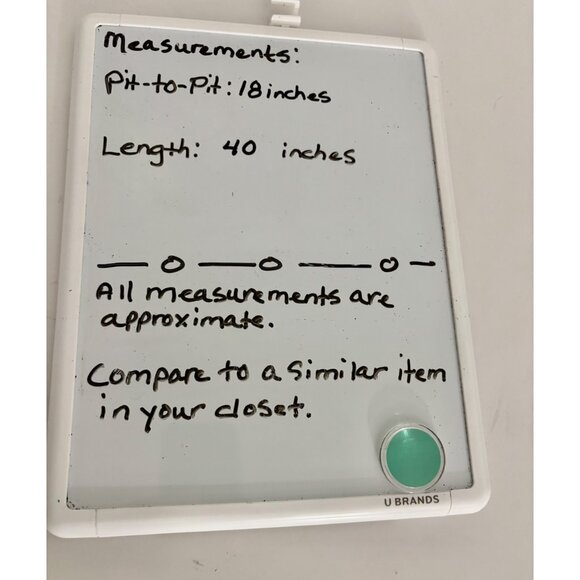 Measurements:
Pit-to-Pit: 18 inches
Length: 40 inches
All measurements are
approximate.
Compare to a similar item
in your closet.
U BRANDS